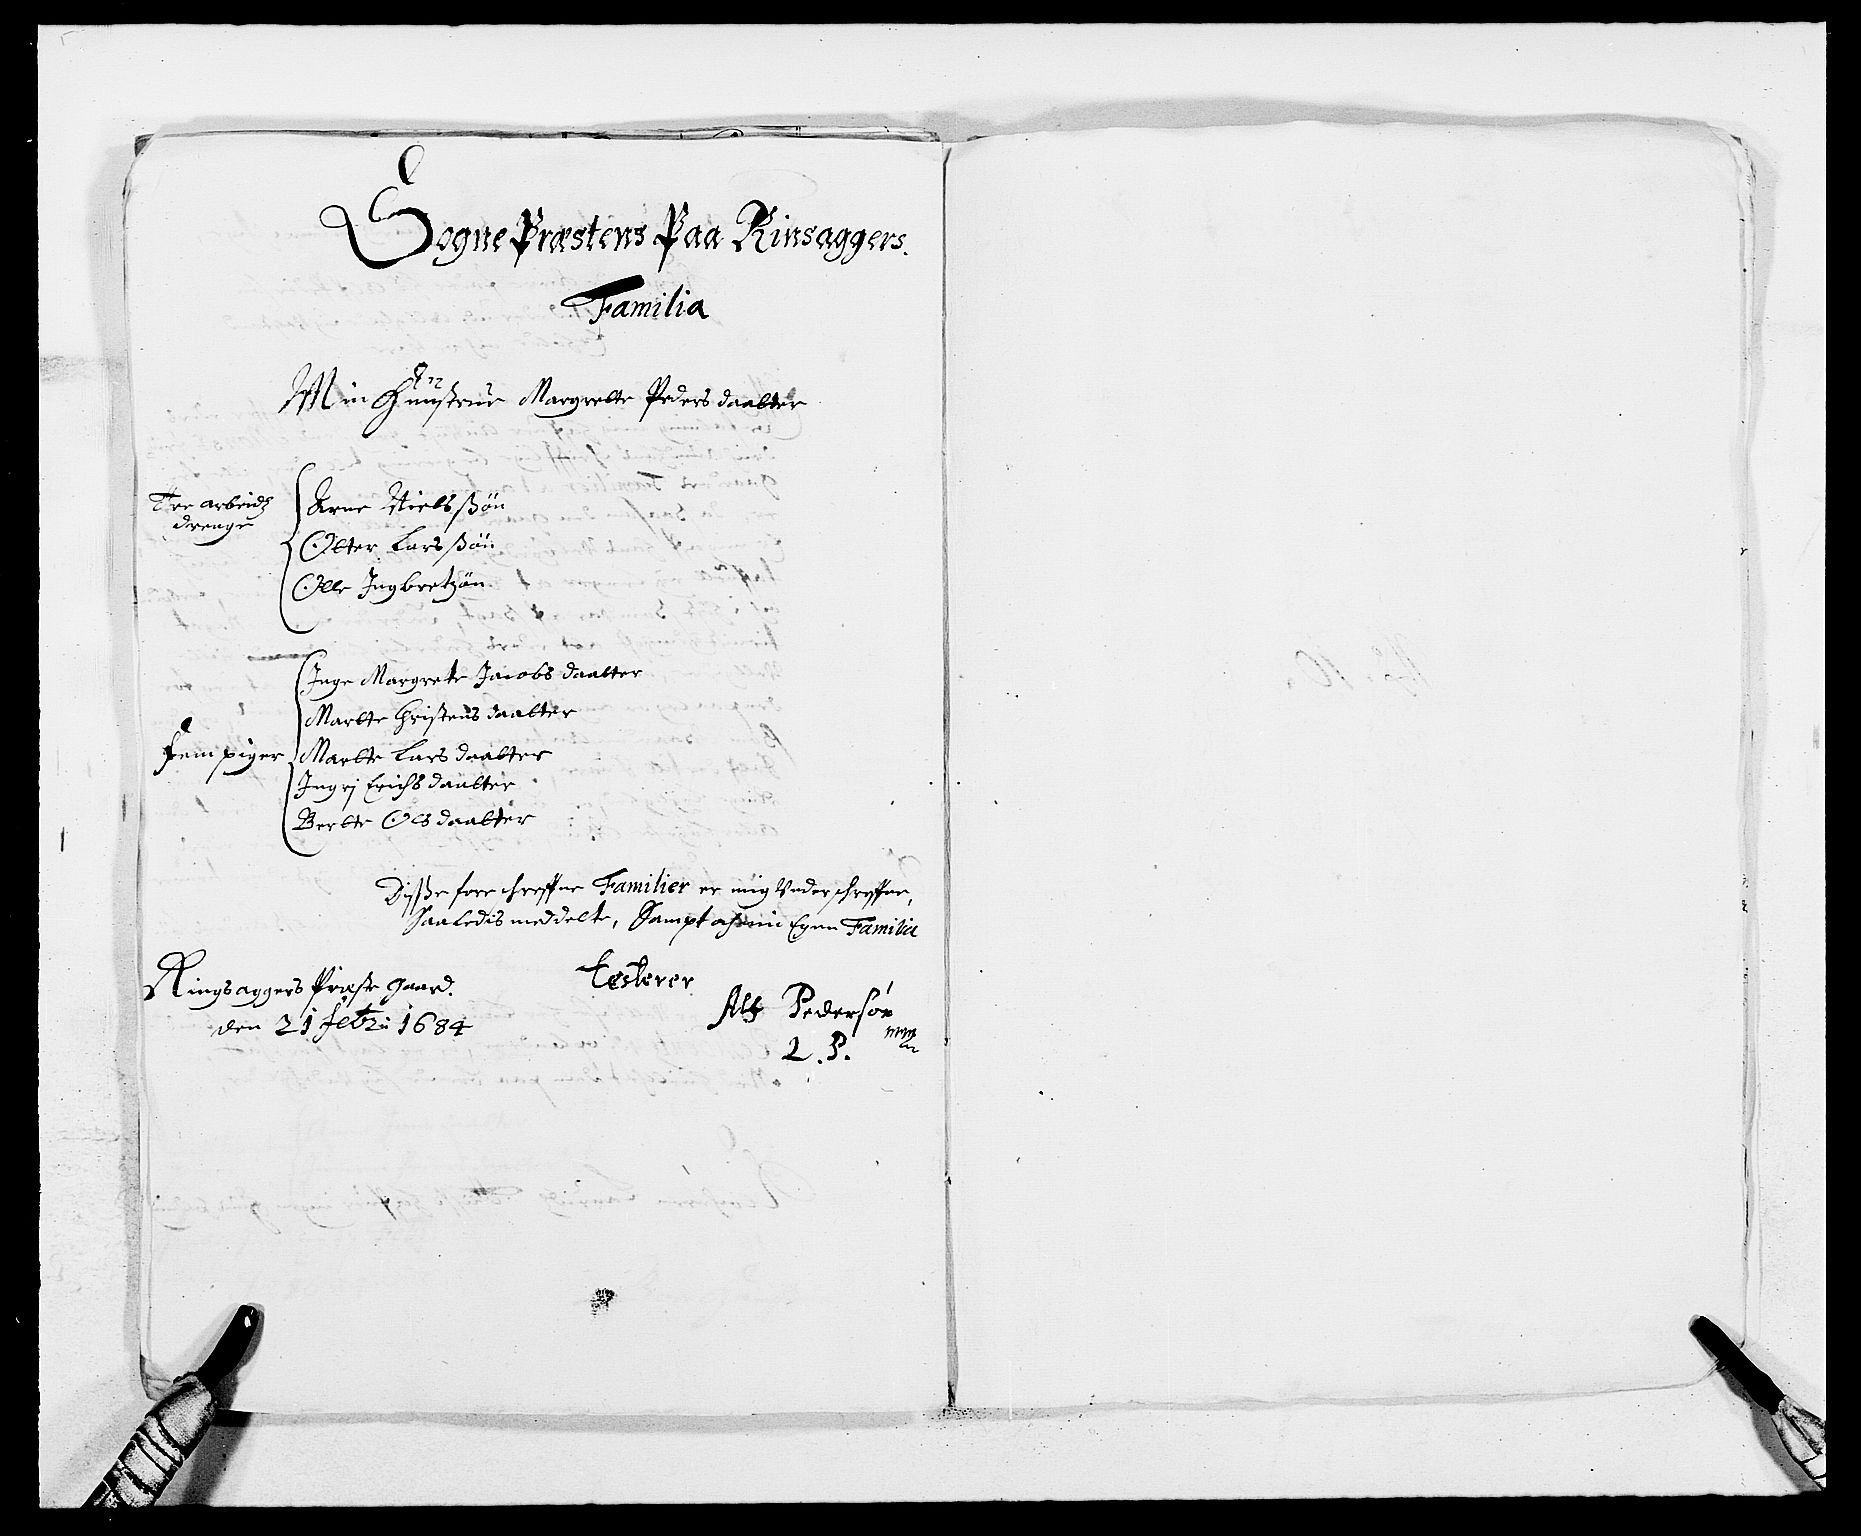 Sogne Præstens Paa Rinsaggers.
Familia
Min Hustrue Margrette Peders daatter
Tre arbeidtz
drenge
Arne Nielssøn
Otter Larssøn
Olle Ingbretzøn
Fem piger
Inge Margrete Jacobs daatter
Marte Christens daatter
Marte Lars daatter
Ingri Erichs daatter
Berte Ols daatter
Disse fore schreffne Familier er mig Underschreffne,
Saaledis meddelte, Sampt och min Egen Familia
Ringsaggers Præste Gaard.
Testerer
den 21 febru 1684
Alf Pedersøn
mpp
L. P.